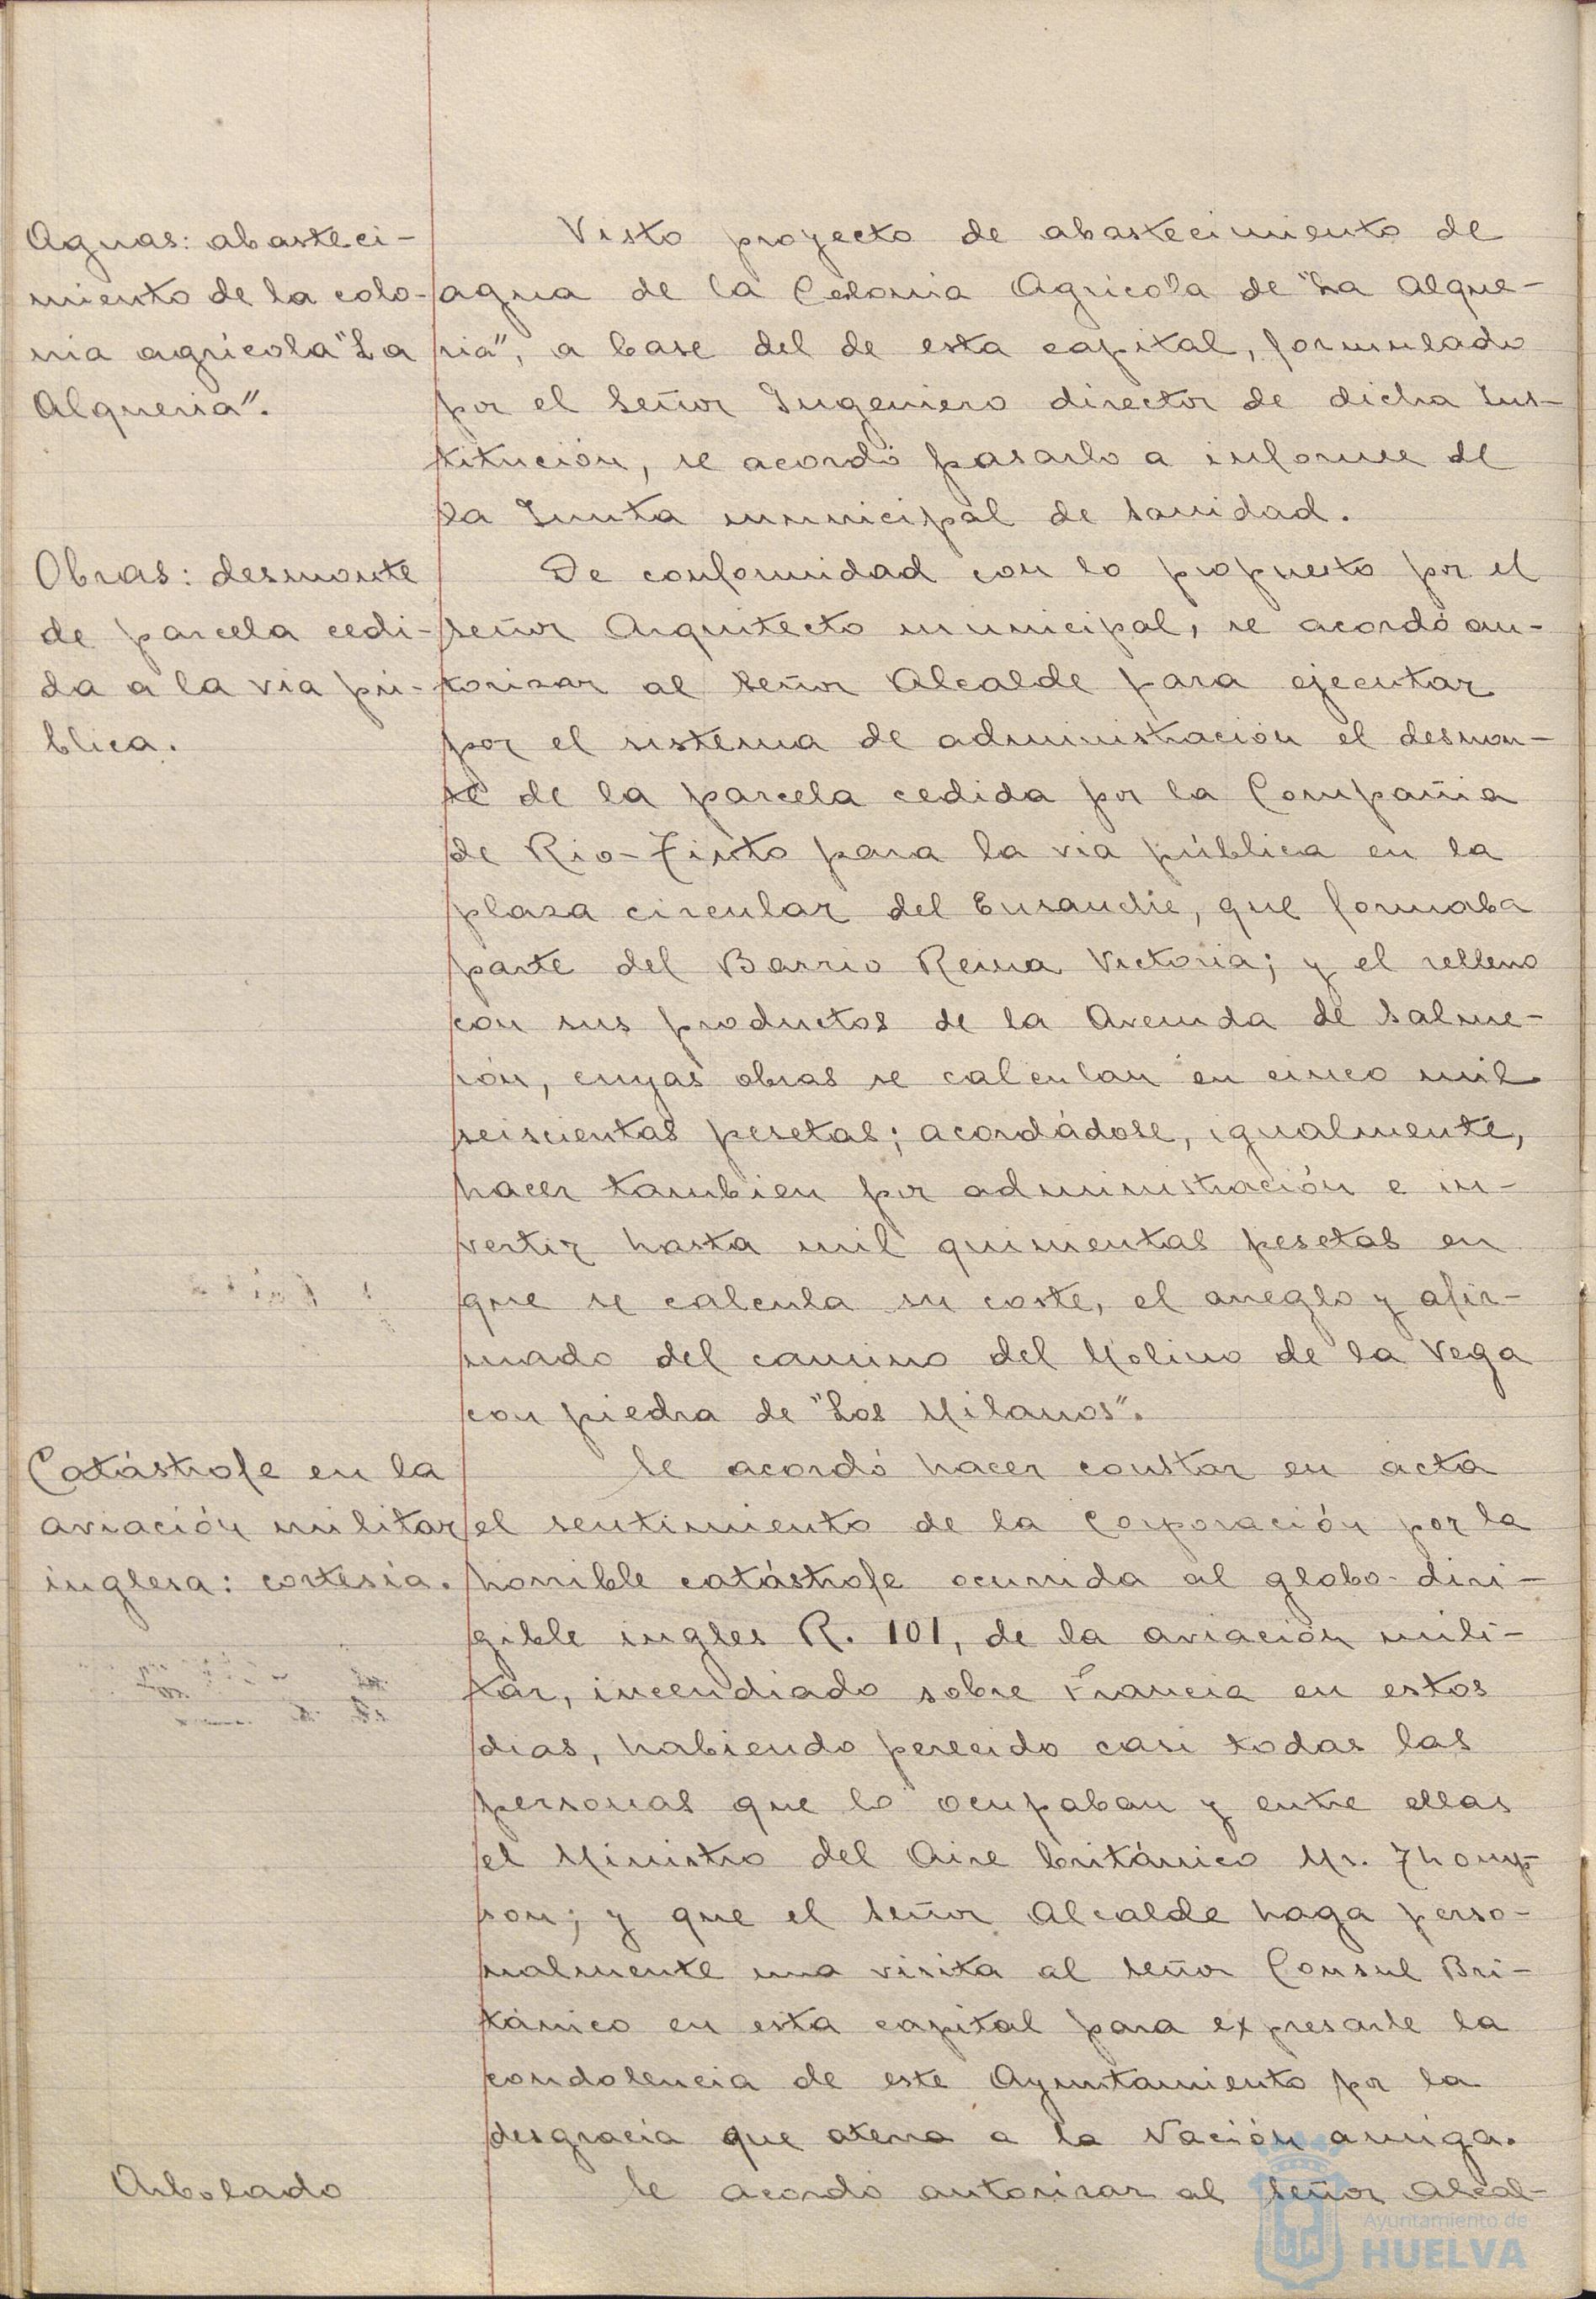 Aguas: abasteci-
miento de la colo-
nia agrícola "La
Alqueria".
Visto proyecto de abastecimiento de
agua de la Colonia Agricola de "La Alque-
ria", a base del de esta capital, formulado
por el Señor Ingeniero director de dicha Ins-
titución, se acordó pasarlo a informe de
la Junta municipal de Sanidad.
Obras: desmonte
de parcela cedi-
da a la via pú-
blica.
De conformidad con lo propuesto por el
señor Arquitecto municipal, se acordó au-
torizar al Señor Alcalde para ejecutar
por el sistema de administración el desmon-
te de la parcela cedida por la Compañia
de Rio-Tinto para la via pública en la
plaza circular del Ensanche, que formaba
parte del Barrio Reina Victoria; y el relleno
con sus productos de la Avenida de Salme-
rón, cuyas obras se calculan en cinco mil
seiscientas pesetas; acordádose, igualmente,
hacer tambien por administración e in-
vertir hasta mil quinientas pesetas en
que se calcula su coste, el arreglo y afir-
mado del camino del Molino de la Vega
con piedra de "Los Milanos".
Catástrofe en la
aviación militar
inglesa: cortesía.
Se acordó hacer constar en acta
el sentimiento de la Corporación por la
horrible catástrofe ocurrida al globo-diri-
gible ingles R. 101, de la aviación mili-
tar, incendiado sobre Francia en estos
dias, habiendo perecido casi todas las
personas que lo ocupaban y entre ellas
el Ministro del Aire británico Mr. Thomp-
son; y que el Señor Alcalde haga perso-
nalmente una visita al Señor Consul Bri-
tánico en esta capital para expresarle la
condolencia de este Ayuntamiento por la
desgracia que aterra a la Nación amiga.
Arbolado
Se acordó autorizar al Señor Alcal-
Ayuntamiento de
HUELVA